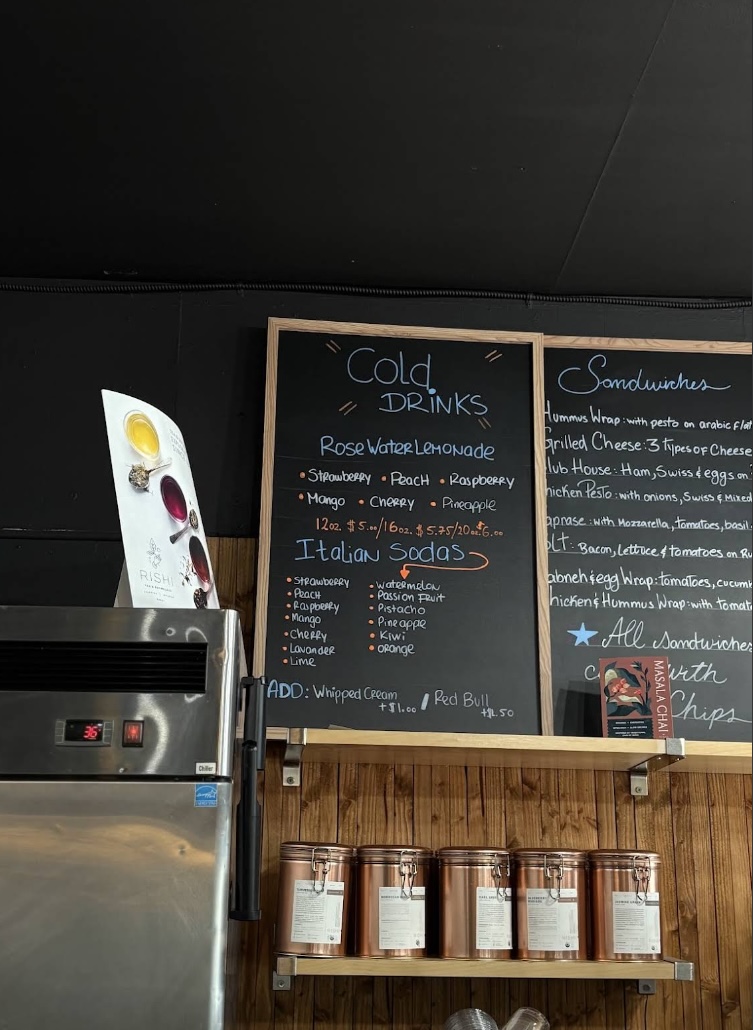 Cold
DRINKS
Rose Water Lemonade
• Strawberry • Peach • Raspberry
• Mango • Cherry • Pineapple
12oz. $5.00/16oz. $5.75/20oz.$6.00
Italian Sodas
• Strawberry
• Peach
• Raspberry
• Mango
• Cherry
• Lavander
• Lime
• Watermelon
• Passion Fruit
• Pistacho
• Pineapple
• Kiwi
• Orange
ADD: Whipped Cream / Red Bull
+$1.00 +$1.50
Sandwiches
Hummus Wrap: with pesto on arabic flat
Grilled Cheese: 3 types of Cheese
lub House: Ham, Swiss & eggs on
hicken Pesto: with onions, Swiss & Mixed
aprase: with Mozzarella, tomatoes, basil
LT: Bacon, Lettuce & tomatoes on
abneh & egg Wrap: tomatoes, cucum
hicken & Hummus Wrap: with tomat
All sandwiches
with
Chips
MASALA CHAI
RISHI
36
Chiller